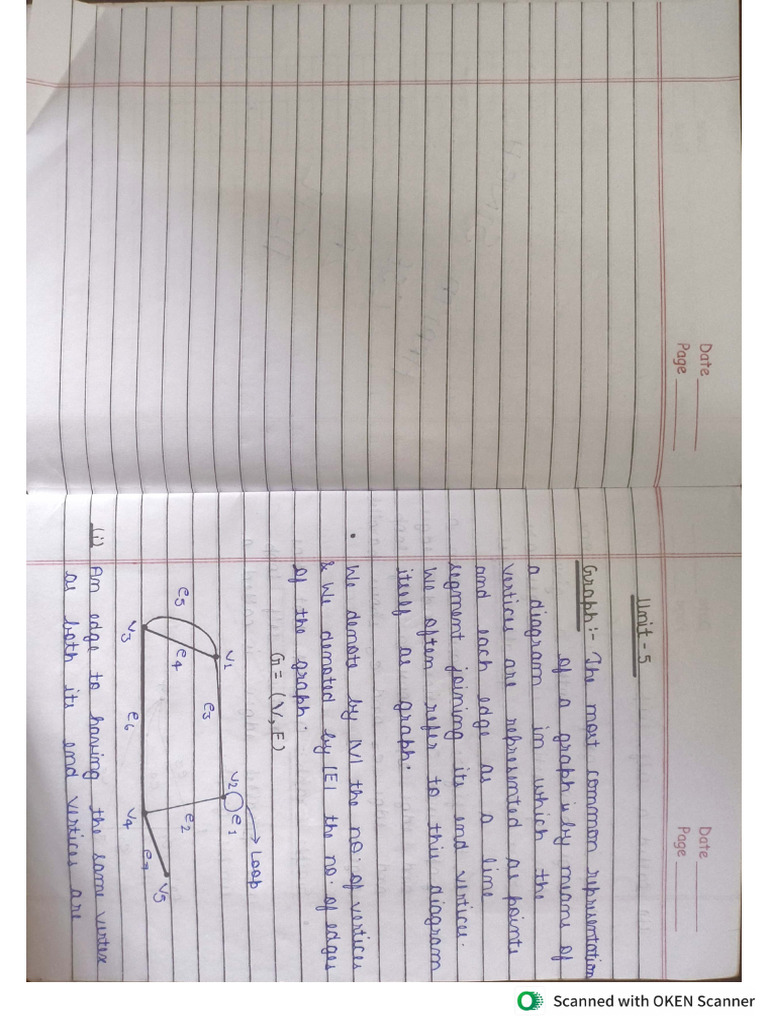 Date
Page
Date
Page
Unit - 5
Graph :- The most common representation
of a graph is by means of
a diagram in which the
vertices are represented as points
and each edge as a line
segment joining its end vertices.
We often refer to this diagram
itself as graph.
• We denote by |V| the no. of vertices
& We denoted by |E| the no. of edges
of the graph.
G = (V, E)
Loop
e1
v2
v1
e3
e2
e5
e4
v3
e6
v4
e7
v5
(i) An edge to having the same vertex
as both its end vertices are
Scanned with OKEN Scanner